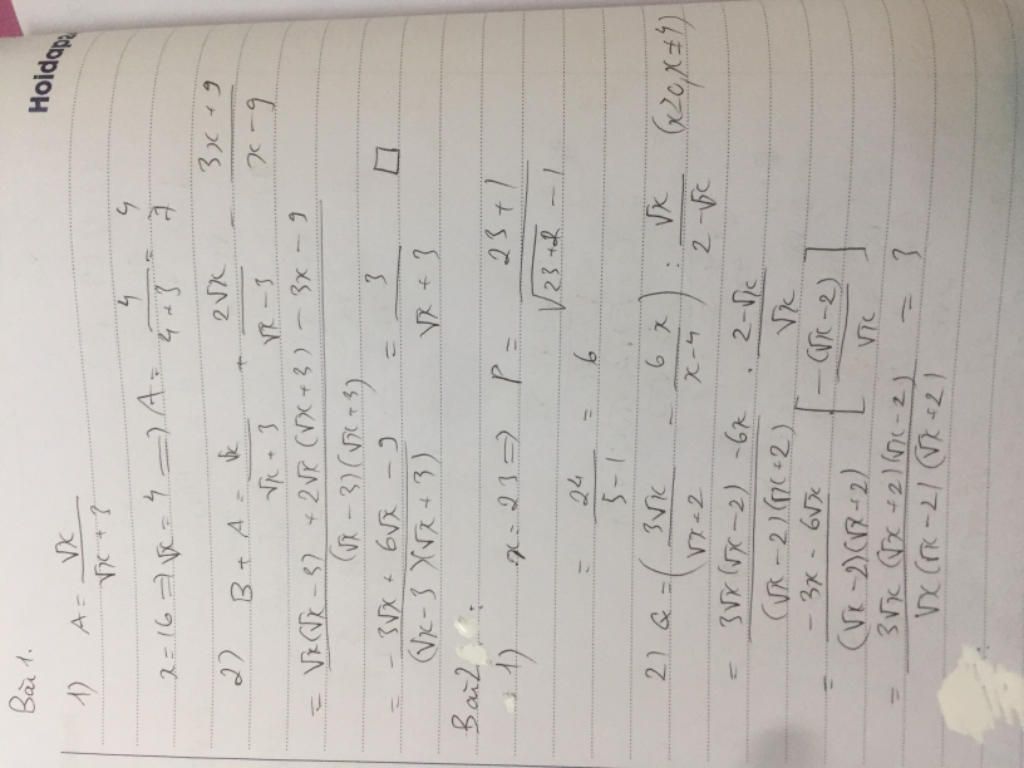 Hoidapa
Bài 1.
1) A = √x / (√x + 3)
x = 16 => √x = 4 => A = 4 / (4 + 3) = 4 / 7
2) B + A = √x / (√x + 3) + 2√x / (√x - 3) - (3x + 9) / (x - 9)
= (√x(√x - 3) + 2√x(√x + 3) - 3x - 9) / ((√x - 3)(√x + 3))
= (-3√x + 6√x - 9) / ((√x - 3)(√x + 3)) = 3 / (√x + 3) □
Bài 2.
1) x = 23 => P = (23 + 1) / (√(23 + 2) - 1)
= 24 / (5 - 1) = 6
2) Q = (3√x / (√x + 2) - 6x / (x - 4)) : √x / (2 - √x) (x≥0, x≠4)
= (3√x(√x - 2) - 6x) / ((√x - 2)(√x + 2)) . (2 - √x) / √x
= (-3x - 6√x) / ((√x - 2)(√x + 2)) [-(√x - 2) / √x]
= 3√x(√x + 2)(√x - 2) / (√x(√x - 2)(√x + 2)) = 3